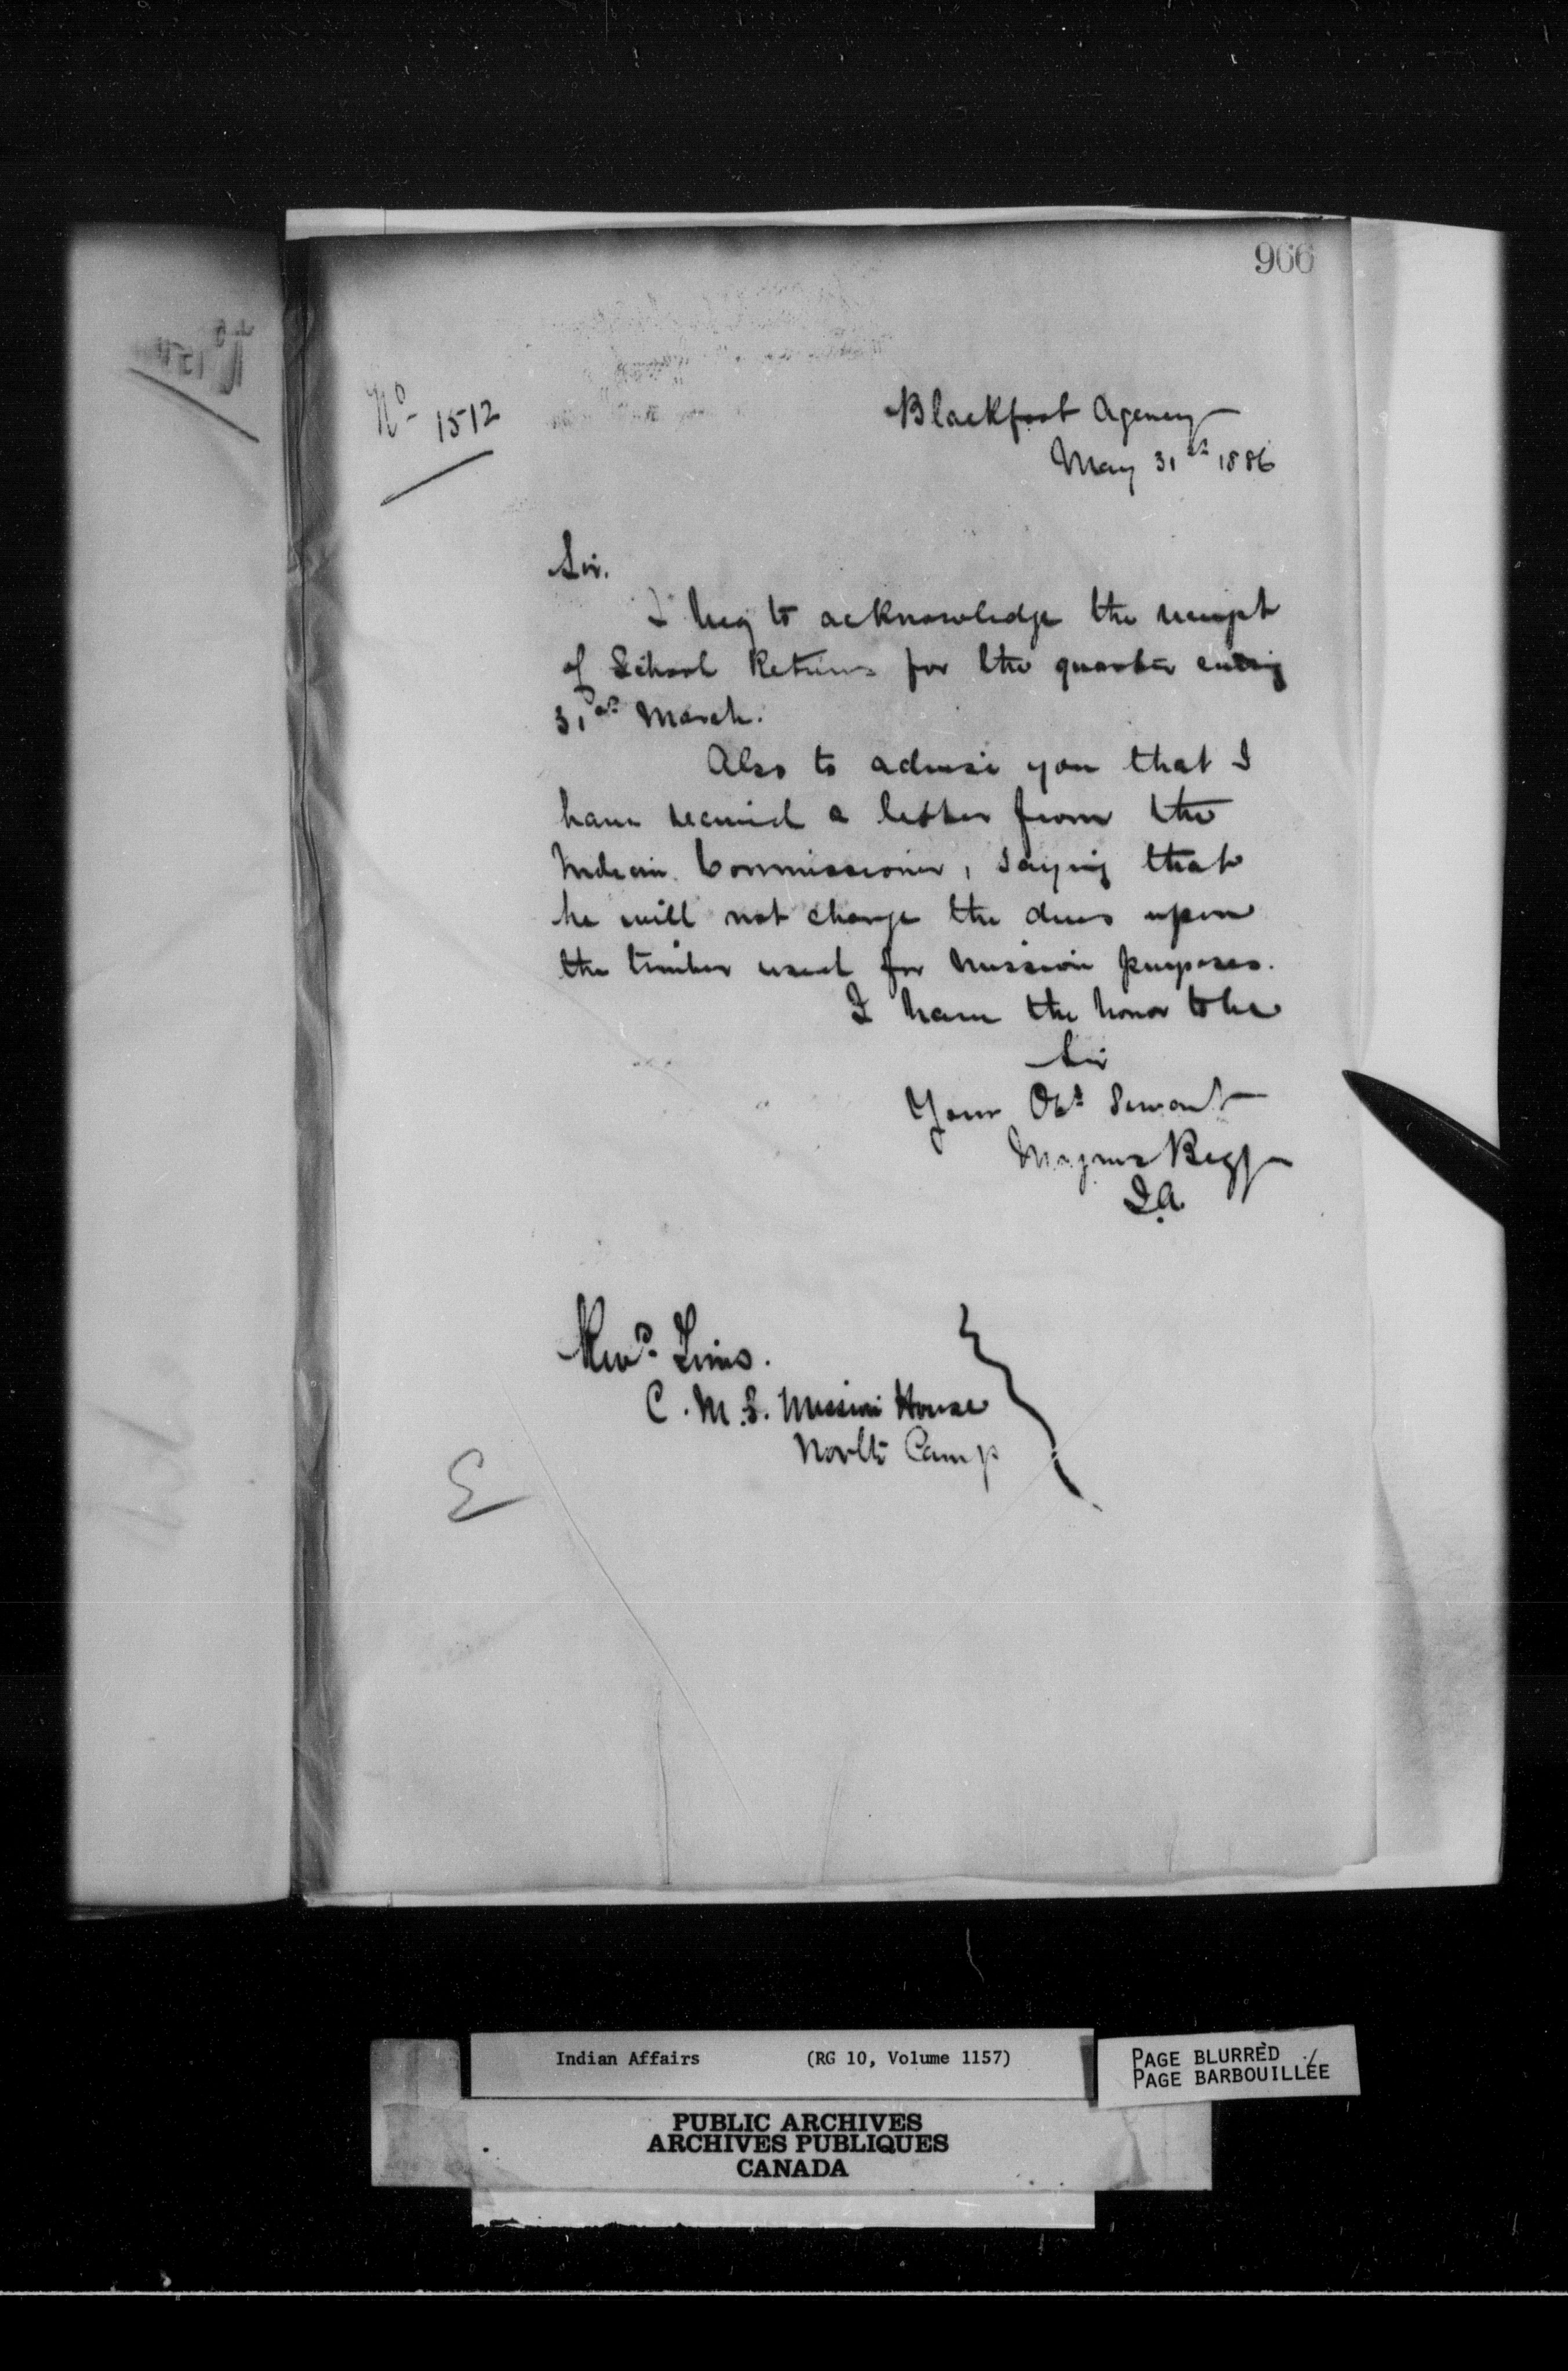 966
No 1512
Blackfoot Agency
May 31st 1886
Sir.
I beg to acknowledge the receipt
of School Returns for the quarter ending
31st March.
Also to advise you that I
have received a letter from the
Indian Commissioner, saying that
he will not charge the dues upon
the timber used for Mission purposes.
I have the honor to be
Sir
Your Obt Servant
Magnus Begg
I.A.
Revd. Tims.
C.M.S. Mission House
North Camp
E
Indian Affairs (RG 10, Volume 1157)
PAGE BLURRED
PAGE BARBOUILLÉE
PUBLIC ARCHIVES
ARCHIVES PUBLIQUES
CANADA